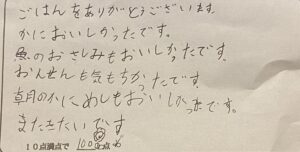 ごはんをありがとうございます。
かにおいしかったです。
魚のおさしみもおいしかったです。
おんせんも気もちかったです。
朝のかにめしもおいしかったです。
またきたいです
10点満点で 100 点